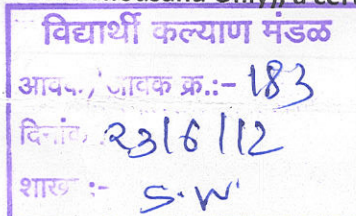 विद्यार्थी कल्याण मंडळ
आवक/जावक क्र.:- 183
दिनांक :- 23/6/12
शाखा :- S.W